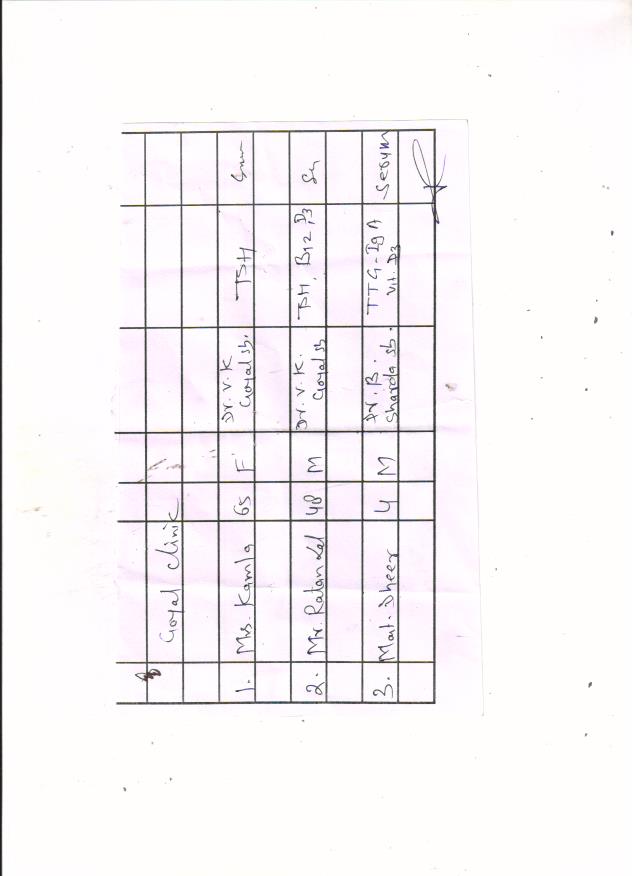 Goyal Clinic
1. Mrs. Kamla 65 F Dr. V. K Goyal sb. TSH
2. Mr. Ratan Lal 48 M Dr. V. K. Goyal sb TSH, B12, D3 Se
3. Mast. Dheer 4 M Dr. B. Sharda sb. TTG-IgA Vit. D3 Serum